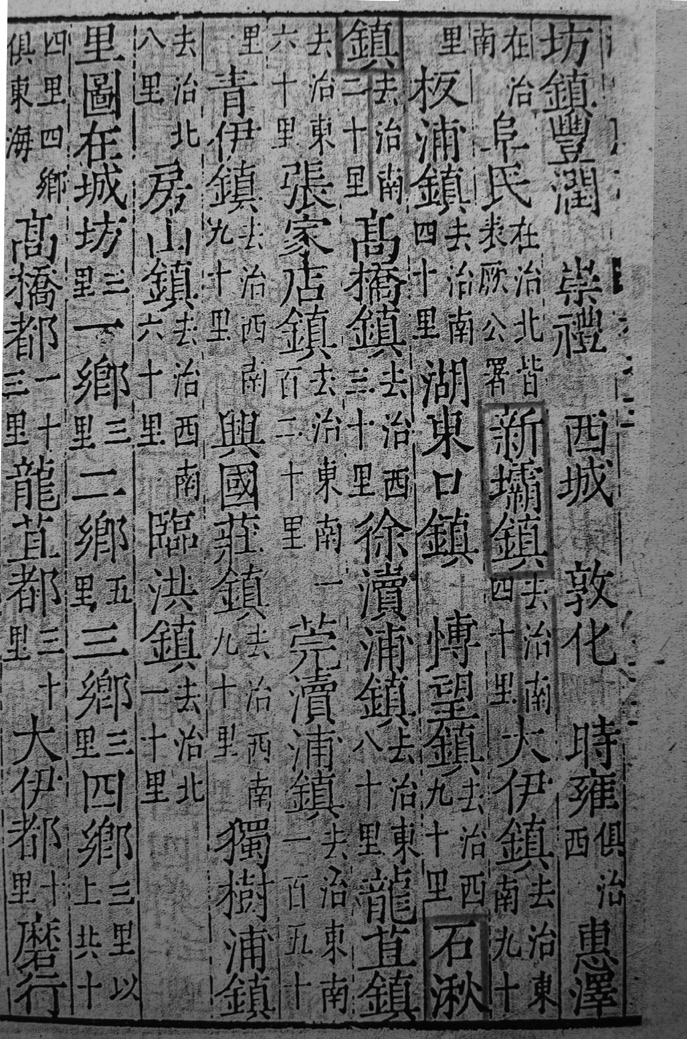 坊鎮豐潤 崇禮 西城 敦化 時雍俱治西 惠澤
在治南 阜民在治北皆表厥公署 新壩鎮去治南四十里 大伊鎮去治東南九十
里 板浦鎮去治南四十里 湖東口鎮 博望鎮去治西九十里 石湫
鎮去治南二十里 高橋鎮去治西三十里 徐瀆浦鎮去治東八十里 龍苴鎮
去治東六十里 張家店鎮去治東南一百二十里 莞瀆浦鎮去治東南一百五十
里 青伊鎮去治西南九十里 興國莊鎮去治西南九十里 獨樹浦鎮
去治北八里 房山鎮去治西南六十里 臨洪鎮去治北一十里
里圖在城坊三里 一鄉三里 二鄉五里 三鄉三里 四鄉三里以上共十
四里四鄉俱東海 高橋都一十三里 龍苴都三十里 大伊都十里 磨行